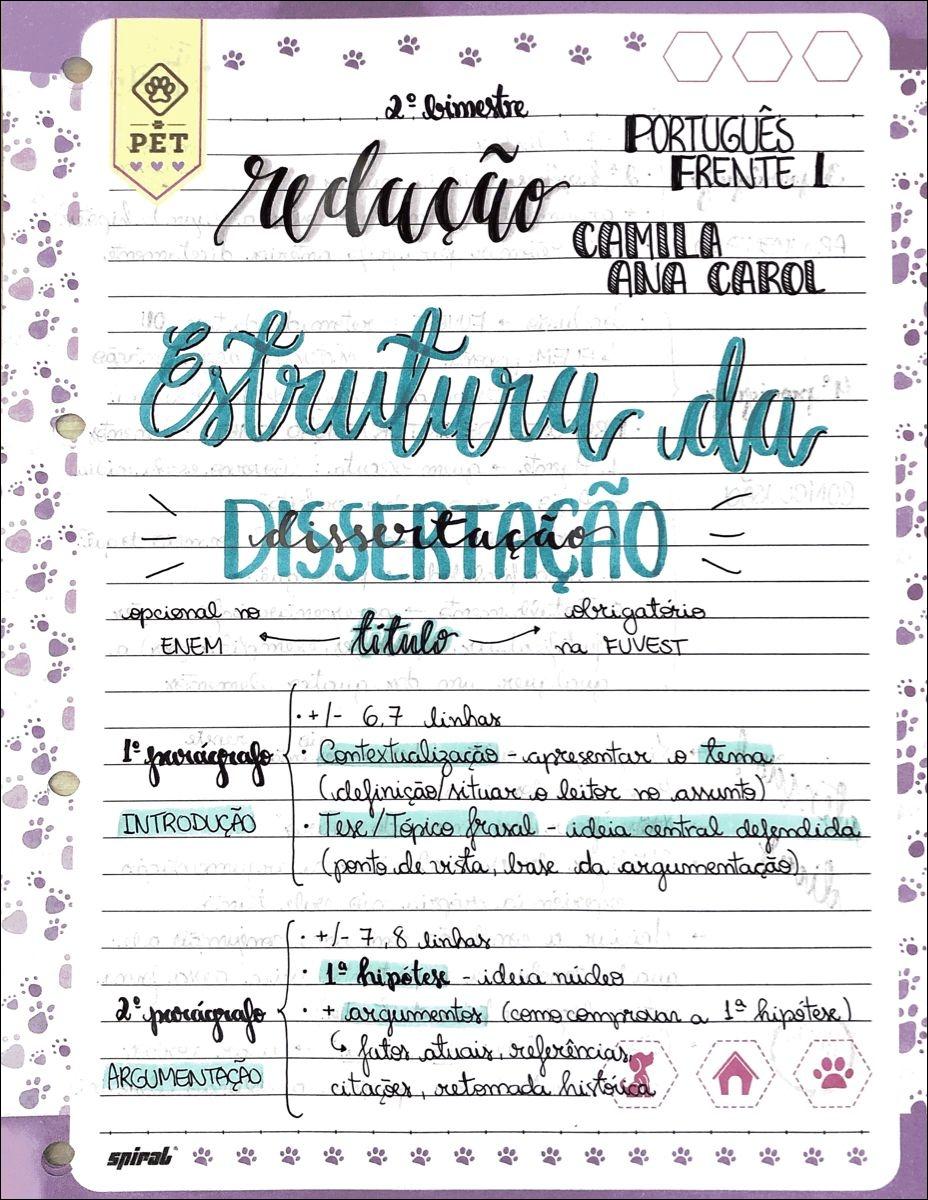 2º bimestre
PET
redação
PORTUGUÊS
FRENTE 1
CAMILA
ANA CAROL
Estrutura da
DISSERTAÇÃO
dissertação
opcional no ENEM
título
obrigatório na FUVEST
1º parágrafo
INTRODUÇÃO
· +/- 6,7 linhas
· Contextualização - apresentar o tema
(definição/situar o leitor no assunto)
· Tese/Tópico frasal - ideia central defendida
(ponto de vista, base da argumentação)
2º parágrafo
ARGUMENTAÇÃO
· +/- 7,8 linhas
· 1ª hipótese - ideia núcleo
· + argumentos (como comprovar a 1ª hipótese)
↳ fatos atuais, referências,
citações, retomada histórica
spiral